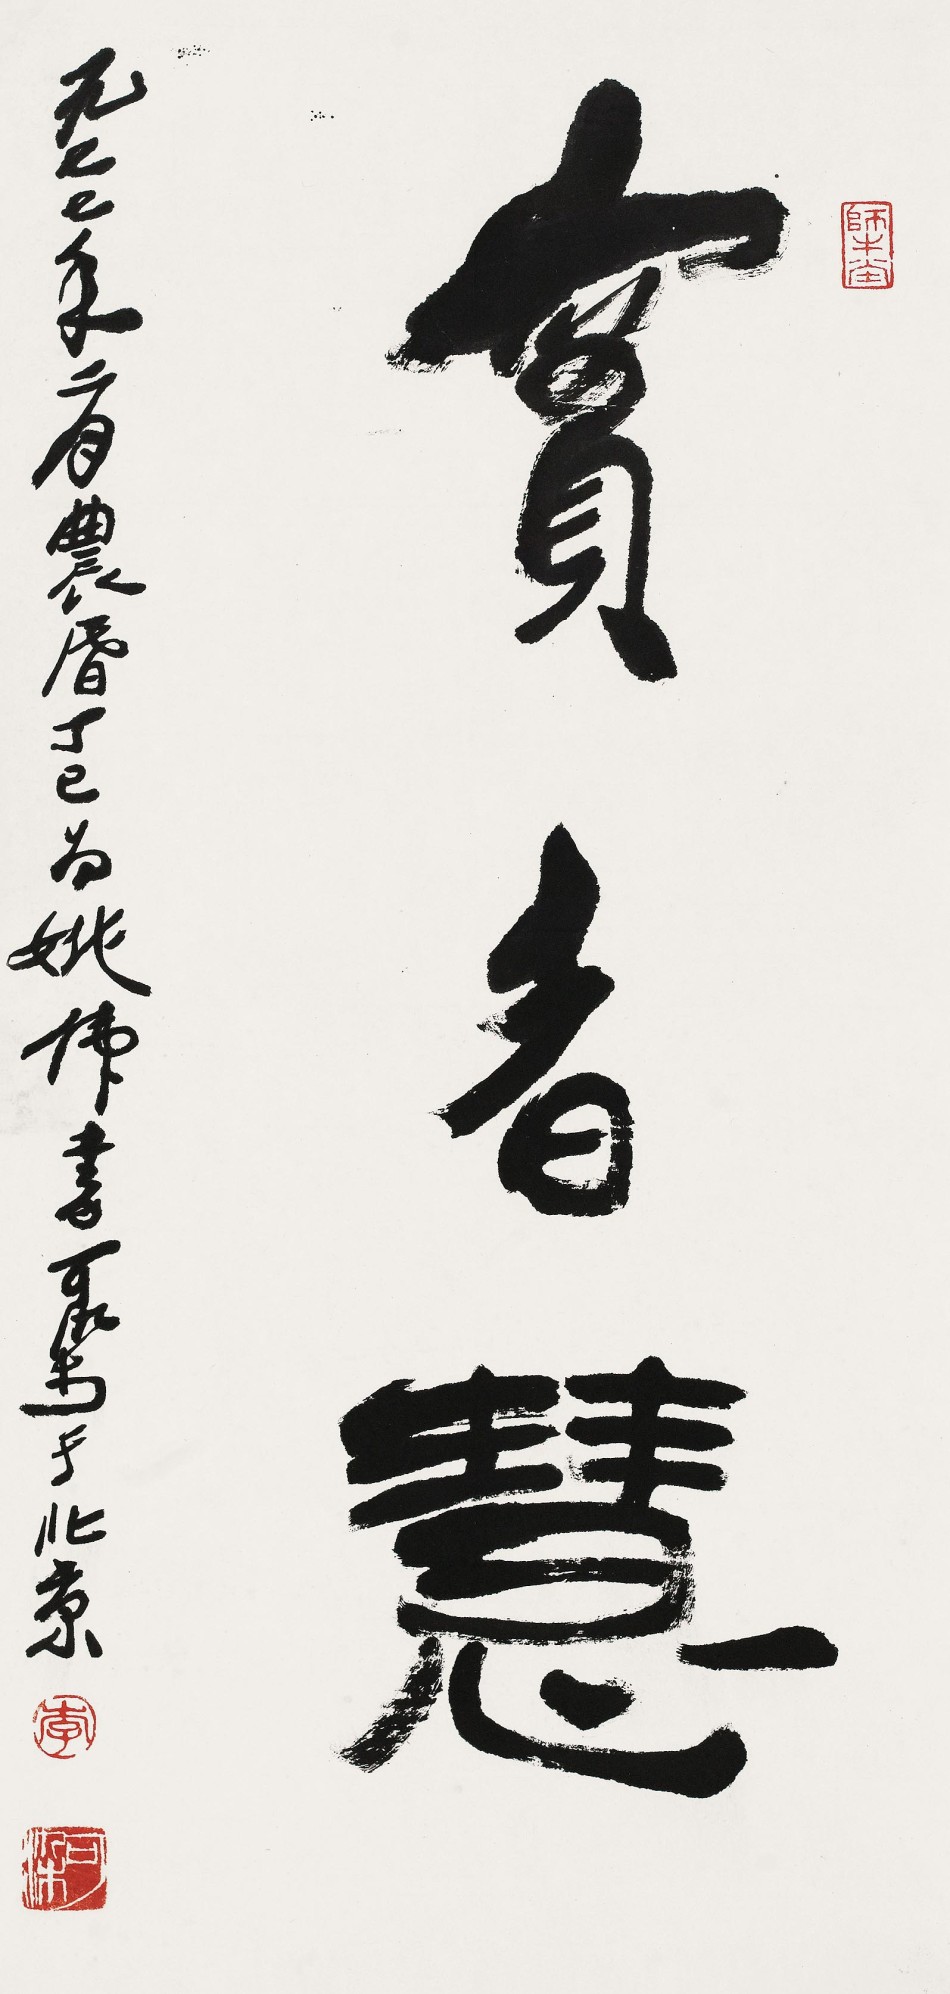 實者慧
師牛堂
一九七七年二月農曆丁巳为姚書可染寫于北京
李
可染